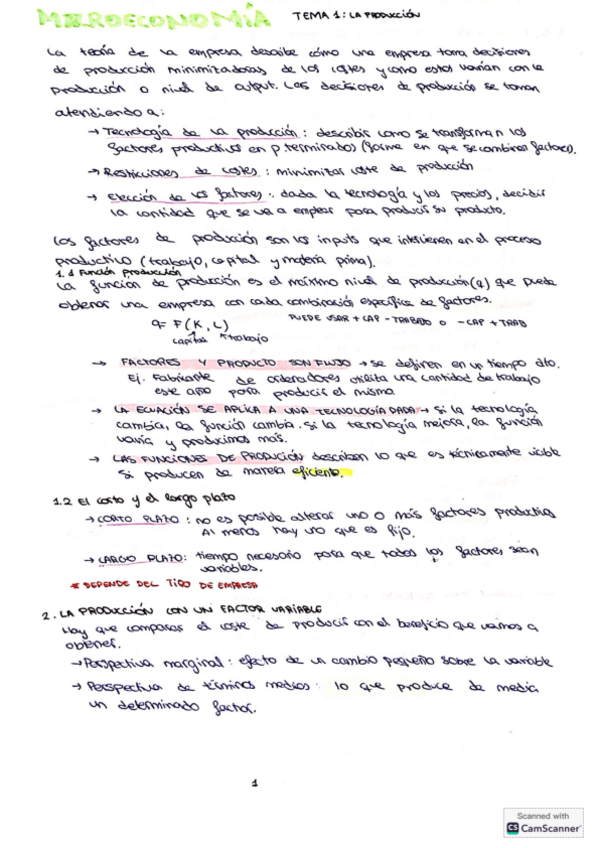 MICROECONOMÍA TEMA 1: LA PRODUCCIÓN
La teoría de la empresa describe cómo una empresa toma decisiones
de producción minimizadoras de los costes y como estos varían con la
producción o nivel de output. Las decisiones de producción se toman
atendiendo a:
→ Tecnología de la producción: describir como se transforman los
factores productivos en p. terminados) (forma en que se combinan factores).
→ Restricciones de costes: minimizar coste de producción
→ Elección de los factores: dada la tecnología y los precios, decidir
la cantidad que se va a emplear para producir su producto.
Los factores de producción son los inputs que intervienen en el proceso
productivo (trabajo, capital y materia prima).
1.1 Función producción
La función de producción es el máximo nivel de producción (q) que puede
obtener una empresa con cada combinación específica de factores.
q = F(K, L) PUEDE USAR + CAP - TRABAJO O - CAP + TRAB
capital trabajo
→ FACTORES Y PRODUCTO SON FLUJO → se definen en un tiempo dto.
Ej. Fabricante de ordenadores utiliza una cantidad de trabajo
este año para producir el mismo.
→ LA ECUACIÓN SE APLICA A UNA TECNOLOGÍA DADA → Si la tecnología
cambia, la función cambia. Si la tecnología mejora, la función
varía y producimos más.
→ LAS FUNCIONES DE PRODUCIÓN describen lo que es técnicamente viable
si producen de manera eficiente.
1.2 El corto y el largo plazo
→ CORTO PLAZO: no es posible alterar uno o más factores productivos
Al menos hay uno que es fijo.
→ LARGO PLAZO: tiempo necesario para que todos los factores sean
variables.
* DEPENDE DEL TIPO DE EMPRESA
2. LA PRODUCCIÓN CON UN FACTOR VARIABLE
Hay que comparar el coste de producir con el beneficio que vamos a
obtener.
→ Perspectiva marginal: efecto de un cambio pequeño sobre la variable
→ Perspectiva de términos medios: lo que produce de media
un determinado factor.
1
Scanned with
CS CamScanner